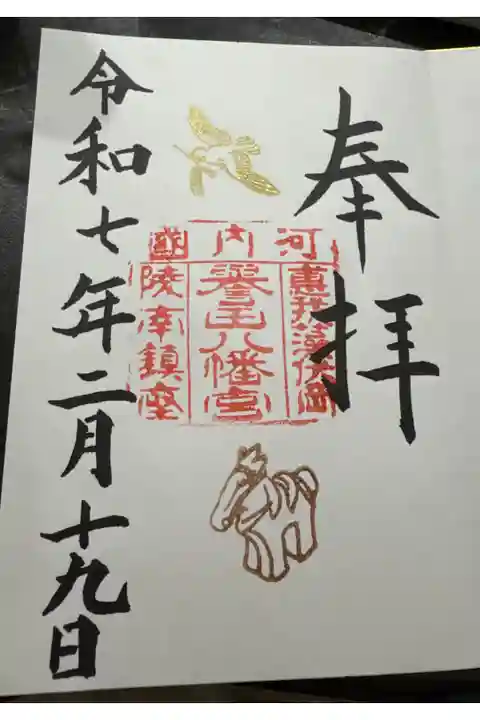 奉拝
河内國
惠我藻伏岡
誉田八幡宮
陵南鎮座
令和七年二月十九日